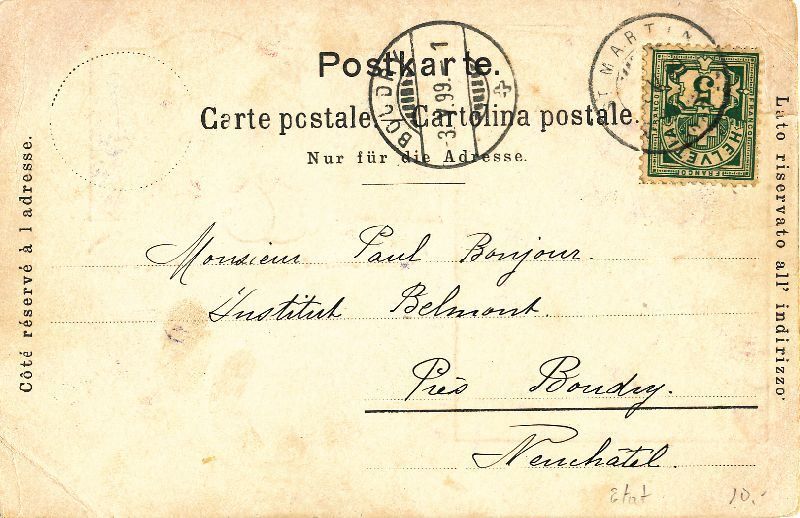 Postkarte.
Carte postale. Cartolina postale.
Nur für die Adresse.
Côté réservé à l adresse.
Lato riservato all' indirizzo
BOUDRY
-3.V.99. 1
ST MARTIN
FRANCO
5
HELVETIA
FRANCO
Monsieur Paul Bonjour.
Institut Belmont.
Près Boudry.
Neuchâtel.
etat 10.-